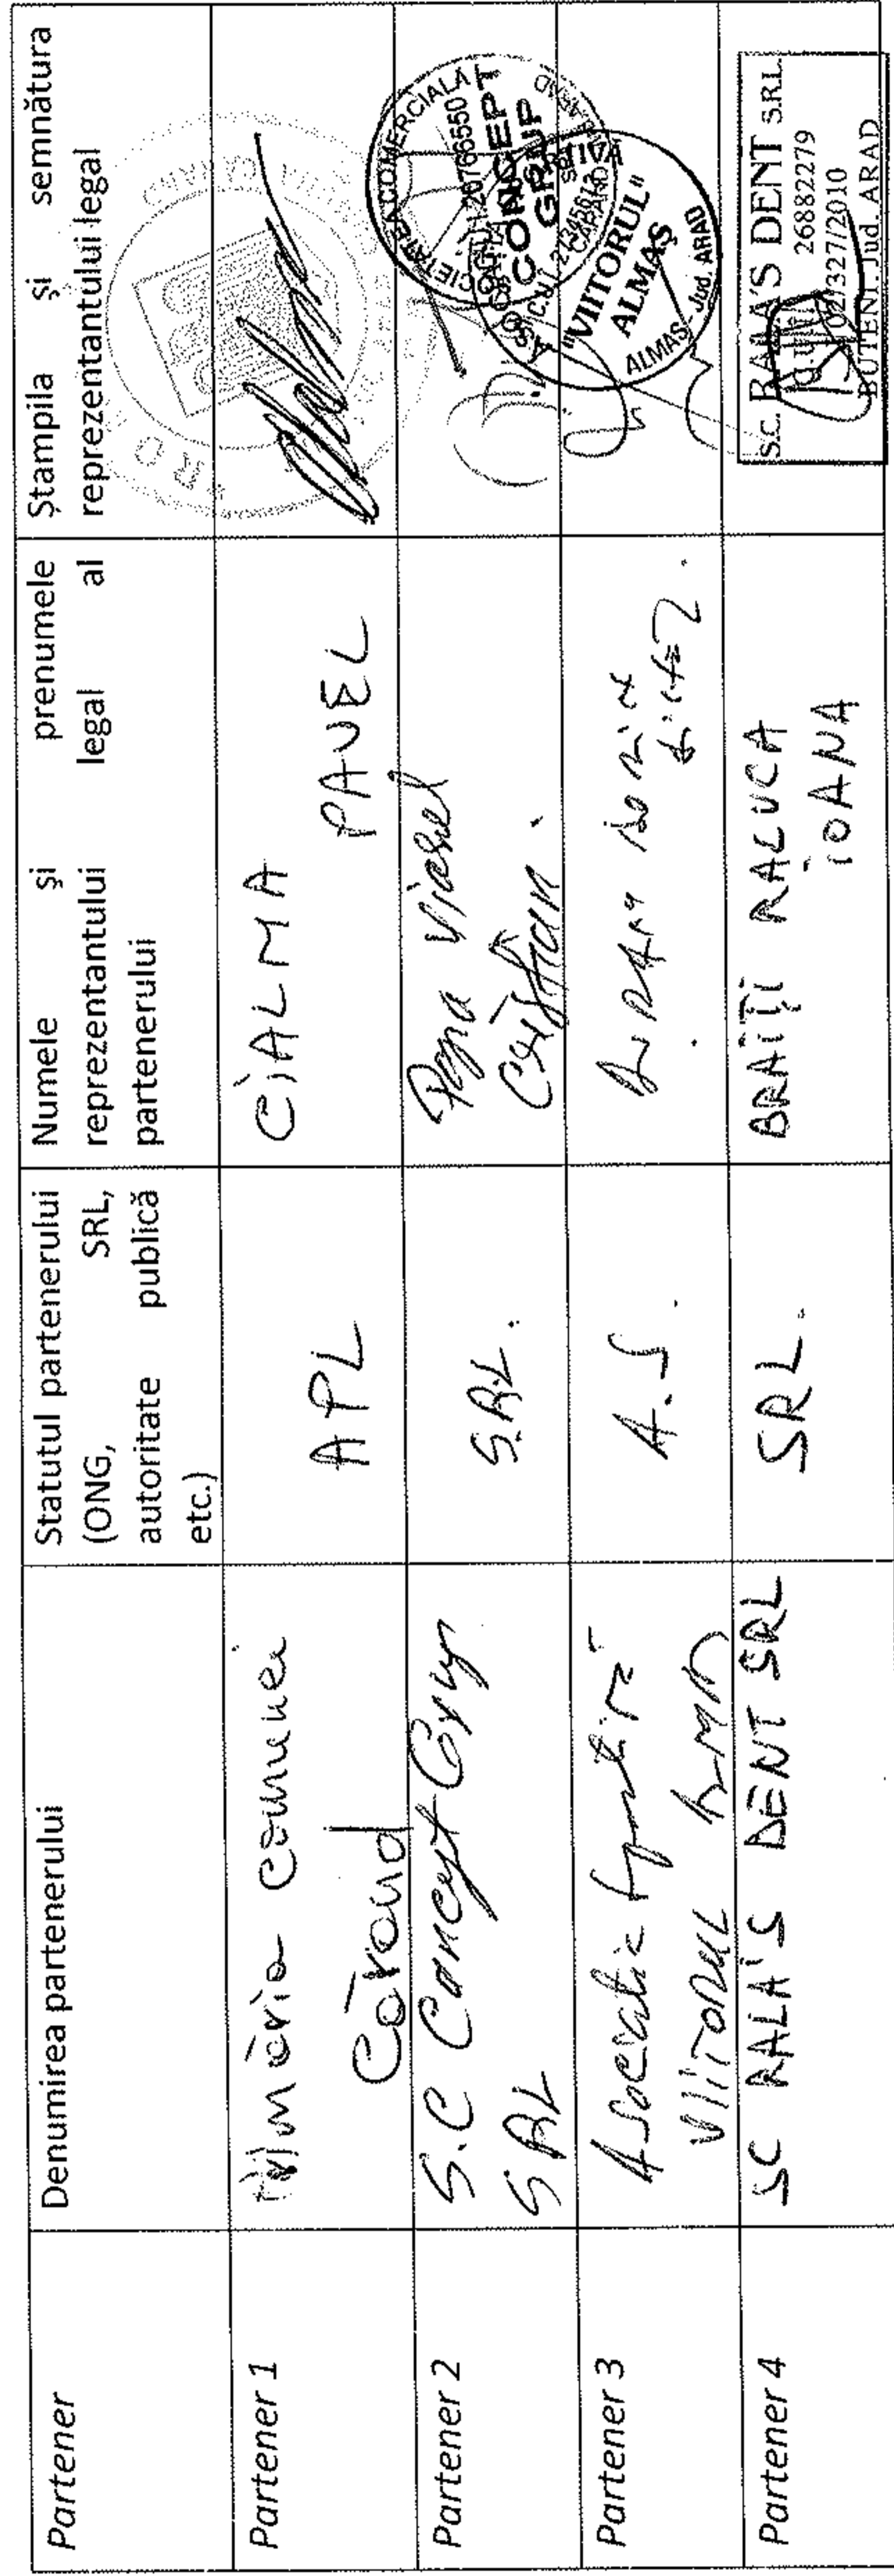 Partener
Denumirea partenerului
Statutul partenerului
(ONG, SRL,
autoritate publică
etc.)
Numele și prenumele
reprezentantului legal al
partenerului
Ștampila și semnătura
reprezentantului legal
Partener 1
comunei
Cărand
APL
CIALMA
PAVEL
Partener 2
S.C Concept Grup
SRL
S.R.L.
Popa Viorel
Cristian.
SOCIETATEA COMERCIALĂ
CONCEPT
GRUP
Partener 3
Asociatie
VIITORUL
A.S.
"VIITORUL"
ALMAȘ
ALMAȘ - Jud. ARAD
Partener 4
SC RALA'S DENT SRL
SRL.
BRAIȚI RALUCA
IOANA
S.C. RALA'S DENT S.R.L.
26882279
02/327/2010
BUTENI. Jud. ARAD